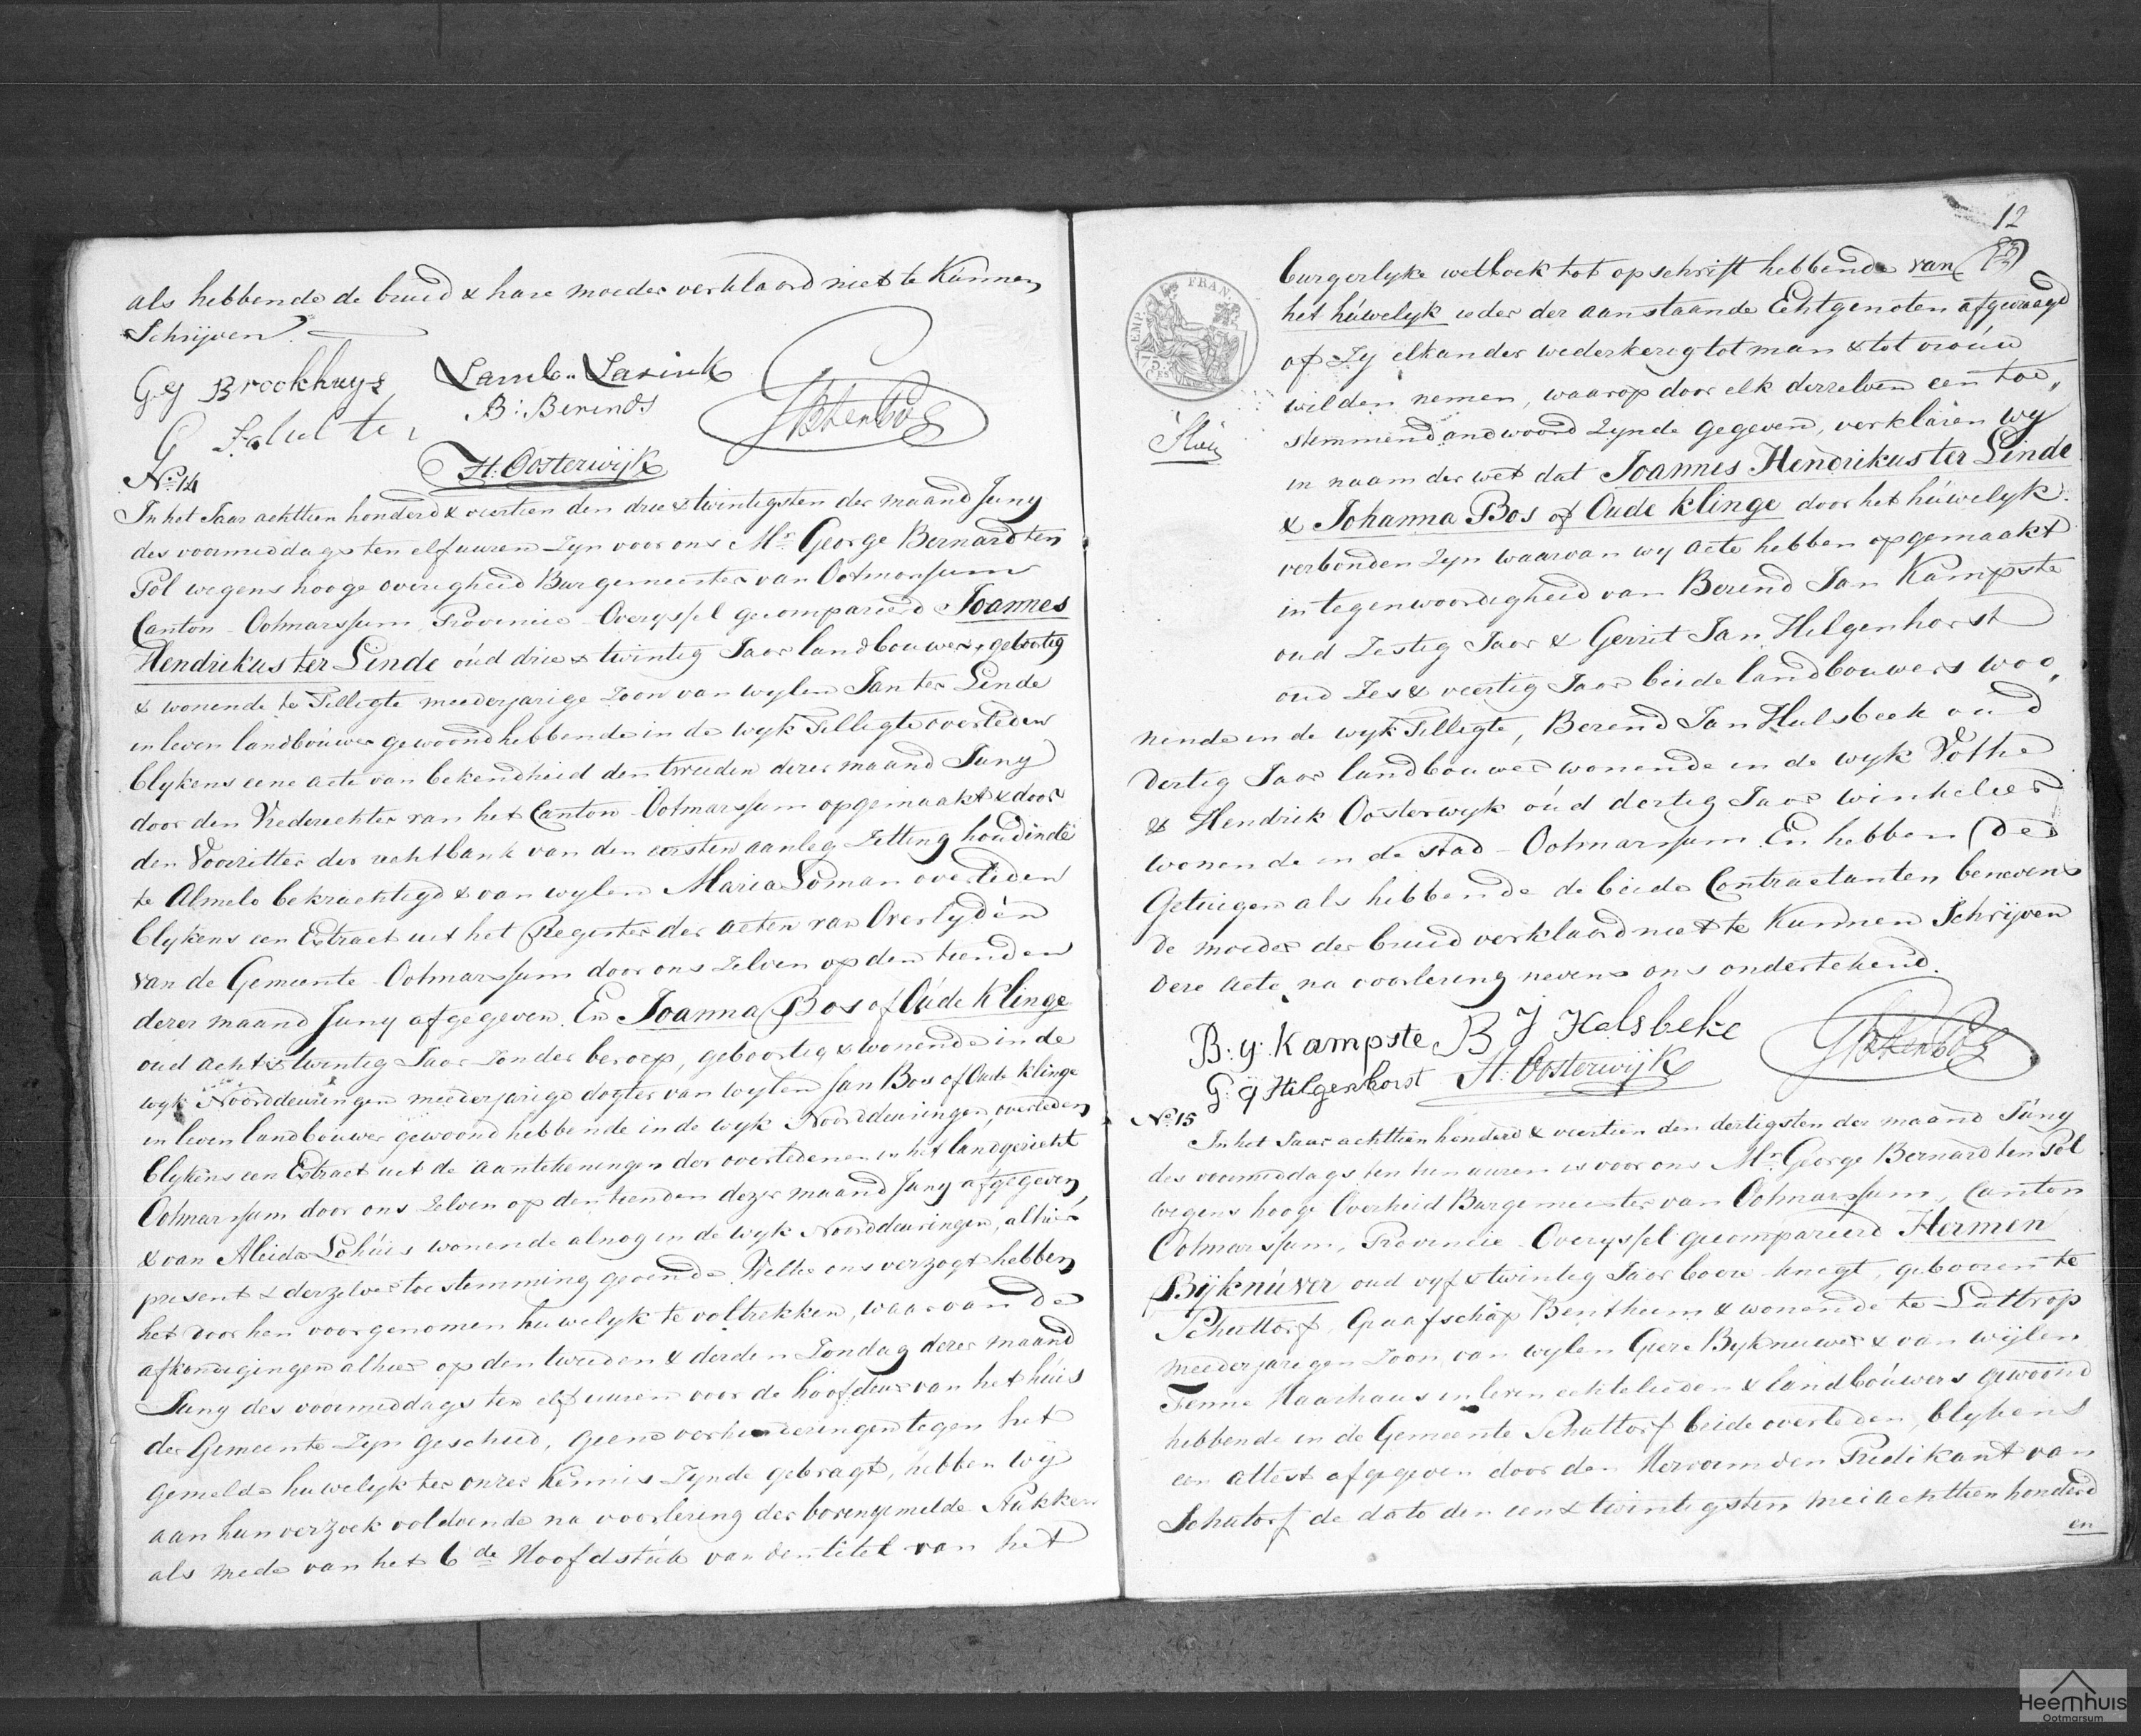 als hebbende de bruid & hare moeder verklaard niet te kunnen
Schrijven.
G J Brookhuys Lamb.. Lasink
B: Berends
G
H: Oosterwijk
No. 14
In het Jaar achttien honderd & veertien den drie & twintigsten der maand Juny
des voormiddags ten elf uuren zyn voor ons Mr. George Bernard ten
Pol wegens hooge overigheid Burgemeester van Ootmarssum
Canton Ootmarssum Provincie Overyssel gecompareerd Joannes
Hendrikus ter Linde oud drie & twintig Jaar landbouwer, geboortig
& wonende te Tilligte meederjarige zoon van wylen Jan ter Linde
in leven landbouwer gewoond hebbende in de wyk Tilligte overleden
blykens eene acte van bekendheid den tweeden dezer maand Juny
door den Vrederechter van het Canton Ootmarssum opgemaakt & door
den Voorzitter der rechtbank van den eersten aanleg Zitting houdende
te Almelo bekrachtigd & van wylen Maria Loman overleden
blykens een Extract uit het Register der acten van Overlyden
van de Gemeente Ootmarssum door ons zelven op den tienden
dezer maand Juny afgegeven. En Joanna Bos of Oude Klinge
oud acht & twintig Jaar zonder beroep, geboortig & wonende in de
wyk Noorddeuringen meederjarige dogter van wylen Jan Bos of Oude Klinge
in leven landbouwer gewoond hebbende in de wyk Noorddeuringen, overleden
blykens een Extract uit de aantekeningen der overledenen in het landgericht
Ootmarssum door ons zelven op den tienden dezer maand Juny afgegeven,
& van Aleida Lohuis wonende alnog in de wyk Noorddeuringen, alhier
present & derzelver toestemming gevende. Welke ons verzogt hebben
het door hen voorgenomen huwelyk te voltrekken, waarvan de
afkondigingen alhier op den tweeden & derden Zondag dezer maand
Juny des voormiddags ten elf uuren voor de hoofdeur van het huis
der Gemeente zyn geschied, geene verhinderingen tegen het
gemelde huwelyk ter onzer kennis zynde gebragt, hebben wij
aan hun verzoek voldoende na voorlezing der bovengemelde Stukken
als mede van het 6de Hoofdstuk van den titel van het
12
burgerlyke wetboek tot opschrift hebbende van
het huwelyk ieder der aanstaande Echtgenoten afgevraagd
of zy elkander wederkerig tot man & tot vrouw
wilden nemen, waarop door elk derzelven een toe„
stemmend andwoord zynde gegeven, verklaren wy
in naam der wet dat Joannes Hendrikus ter Linde
& Johanna Bos of Oude Klinge door het huwelyk
verbonden zyn waarvan wy acte hebben opgemaakt
in tegenwoordigheid van Berend Jan Kampste
oud zestig Jaar & Gerrit Jan Hilgenhorst
oud zes & veertig Jaar beide landbouwers woo„
nende in de wyk Tilligte, Berend Jan Hulsbeek oud
dertig Jaar landbouwer wonende in de wyk Volthe
& Hendrik Oosterwyk oud dertig Jaar winkelier
wonende in de stad Ootmarssum. En hebben de
Getuigen als hebbende de beide Contractanten benevens
de moeder der bruid verklaard niet te kunnen Schrijven
deze acte na voorlezing nevens ons ondertekend.
B: y: Kampste B J Halsbeke
G: g Hilgenhorst H: Oosterwijk
No. 15
In het Jaar achttien honderd & veertien den dertigsten der maand Juny
des voormiddags ten tien uuren is voor ons Mr. George Bernard ten Pol
wegens hooge Overheid Burgemeester van Ootmarssum, Canton
Ootmarssum, Provincie Overyssel gecompareerd Hermen
Bijknúver oud vyf & twintig Jaar boere knegt, gebooren te
Schuttorf, Graafschap Bentheim & wonende te Lattrop
meederjarigen zoon van wylen Geert Byknuwer & van wijlen
Fenne Haarhaus in leven echtelieden & landbouwers gewoond
hebbende in de Gemeente Schuttorf beide overleden blykens
een attest afgegeven door den Hervormden Predikant van
Schutorf de dato den een & twintigsten mei achttien honderd
en
EMP. FRAN.
Heemhuis
Ootmarsum